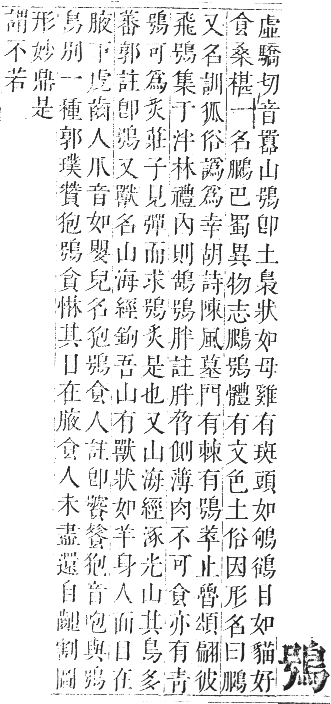 鴞
虛驕切音囂山鴞卽土梟狀如母雞有斑頭如鴝鵒目如貓好
食桑椹一名鵩巴蜀異物志鵩鴞體有文色土俗因形名曰鵩
又名訓狐俗譌爲幸胡詩陳風墓門有棘有鴞萃止魯頌翩彼
飛鴞集于泮林禮內則鵠鴞胖註胖脅側薄肉不可食亦有青
鴞可爲炙莊子見彈而求鴞炙是也又山海經涿光山其鳥多
蕃郭註卽鴞又獸名山海經鉤吾山有獸狀如羊身人面目在
腋下虎齒人爪音如嬰兒名狍鴞食人註卽饕餮狍音咆與鴞
鳥別一種郭璞贊狍鴞貪惏其目在腋食人未盡還自齦割圖
形妙鼎是
謂不若